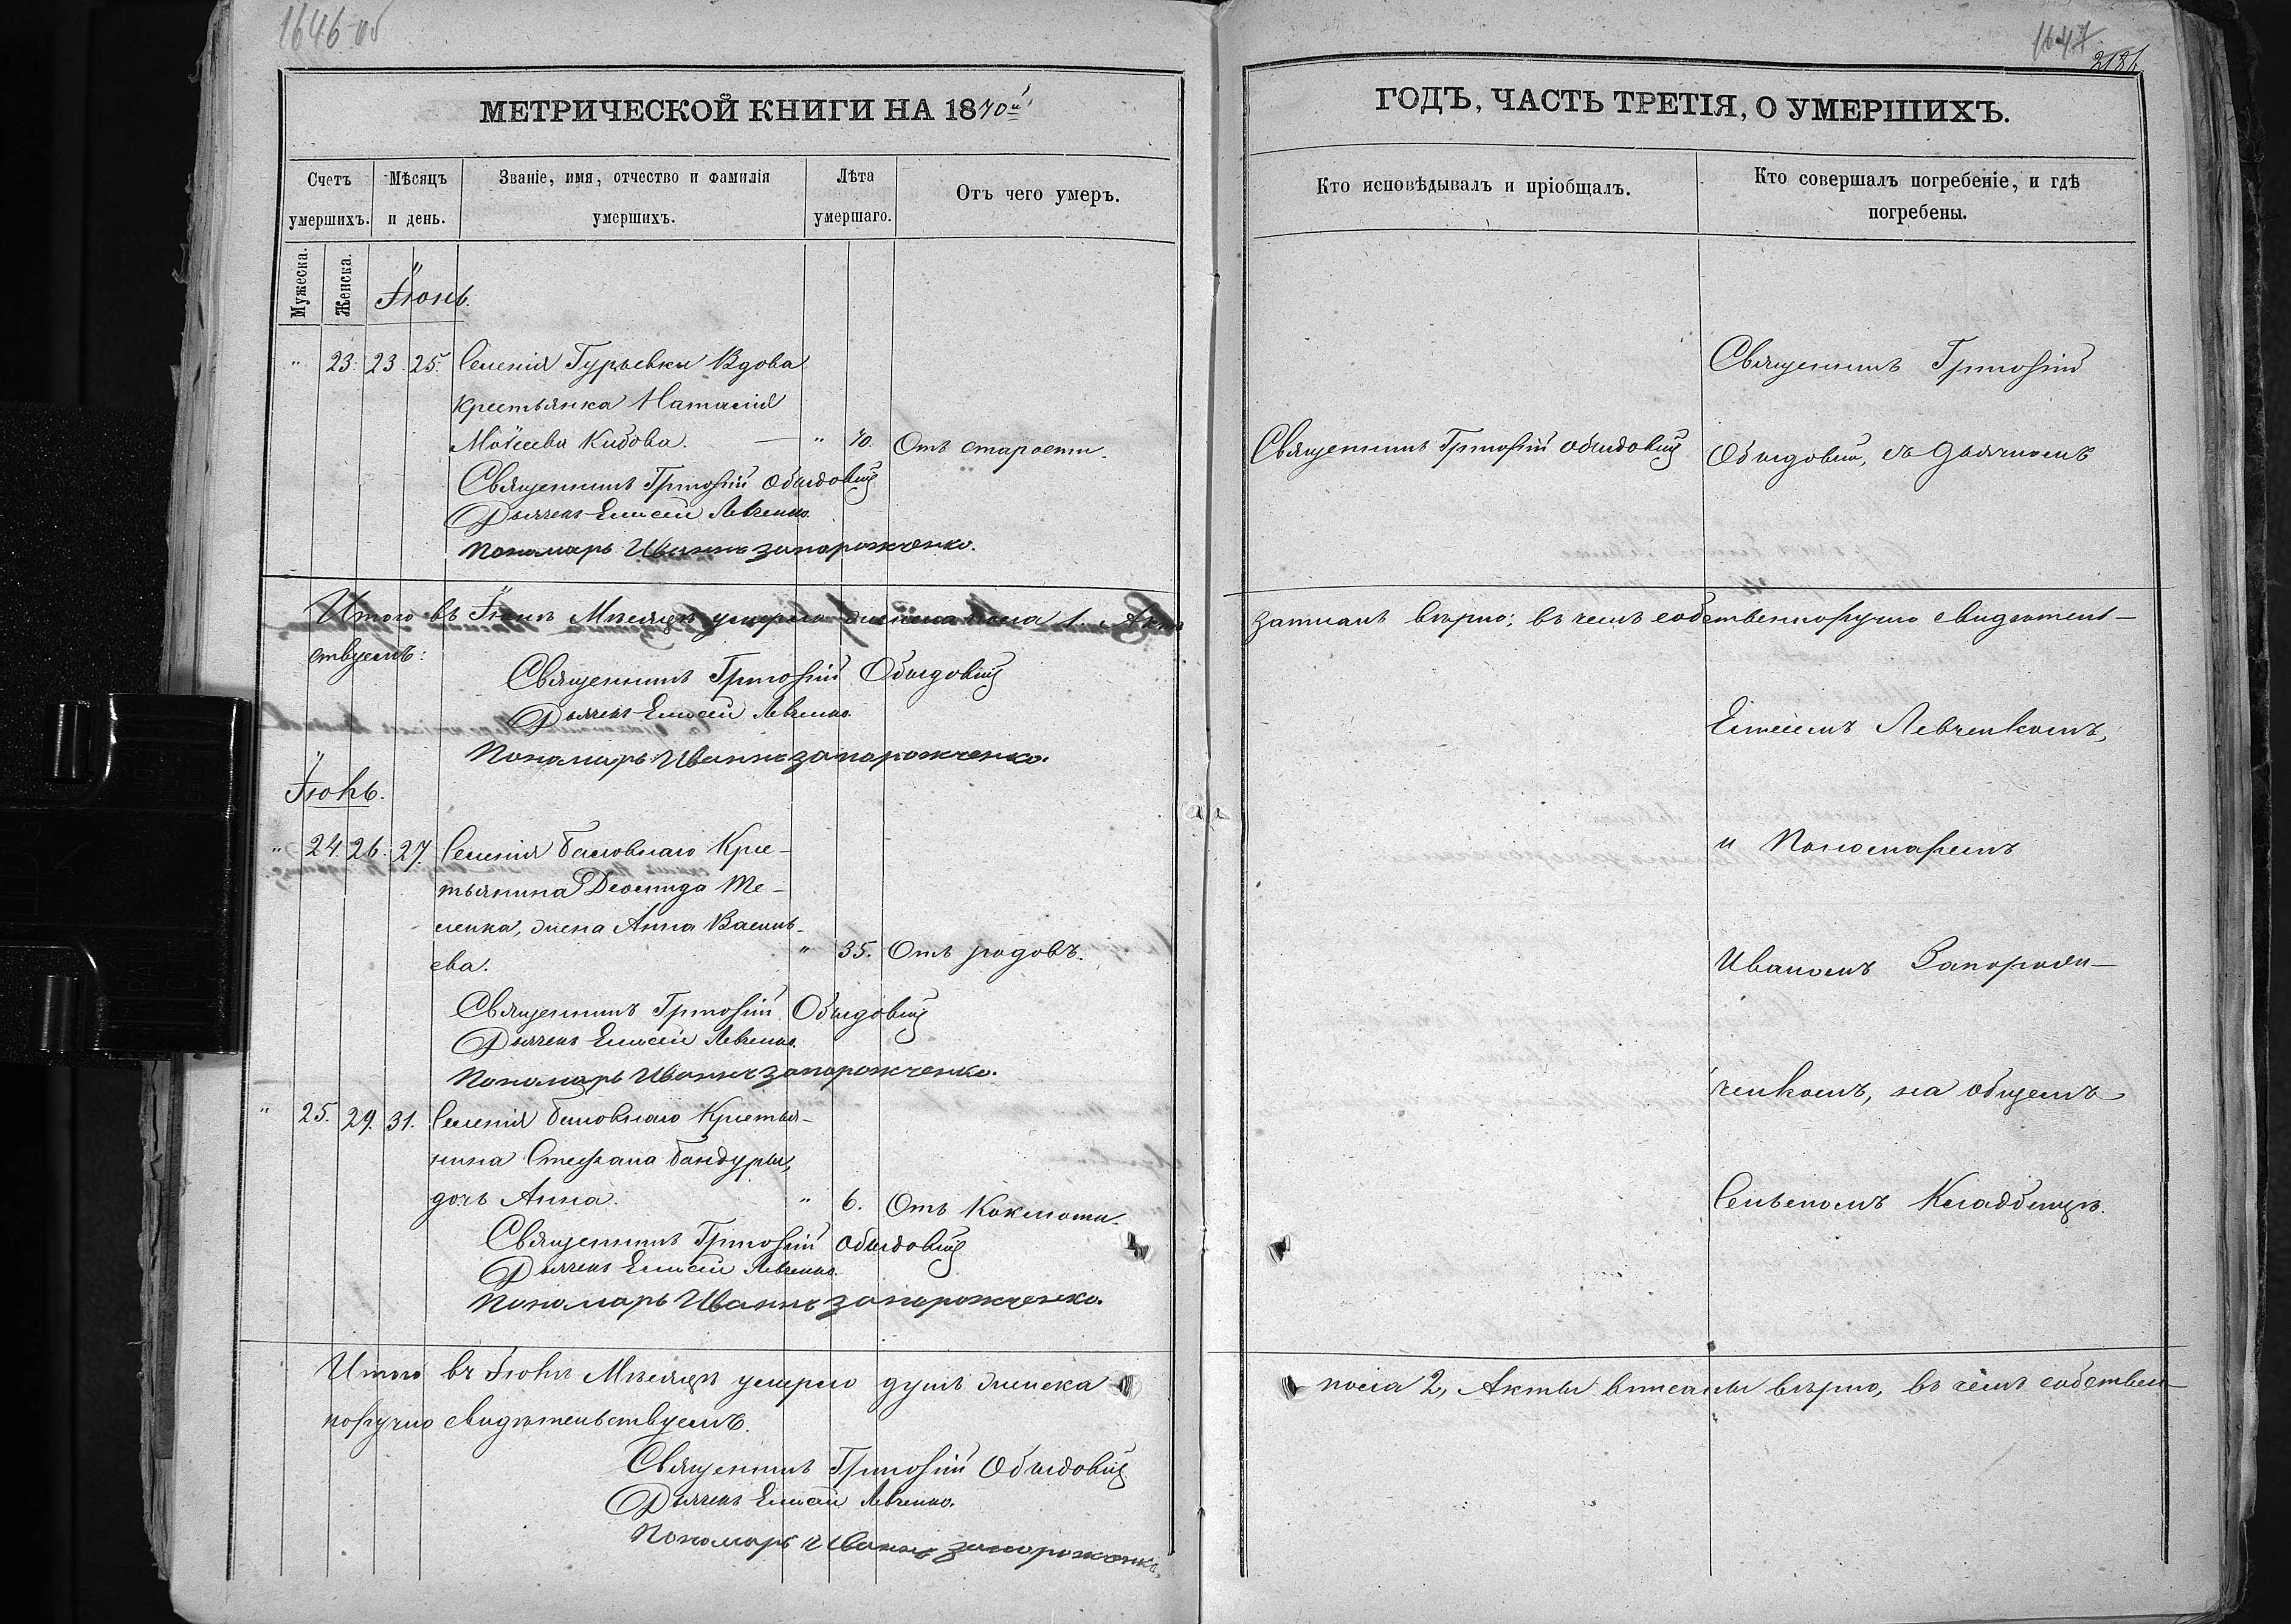 1646 об
МЕТРИЧЕСКОЙ КНИГИ НА 1870й
Счетъ умершихъ.
Мѣсяцъ и день.
Званіе, имя, отчество и фамилія умершихъ.
Лѣта умершаго.
Отъ чего умеръ.
Мужеска.
Женска.
Іюнь.
" 23. 23. 25. Селенія Гурьевки Вдова
крестьянка Наталія
Моѵсеева Кибова. — " 70. Отъ старости.
Священникъ Григорій Обыдовскій
Дьячекъ Елисей Левченко.
Пономарь Иванъ Запорожченко.
Итого въ Іюнѣ Мѣсяцѣ умерло женска пола 1. Актъ
ствуемъ:
Священникъ Григорій Обыдовскій
Дьячекъ Елисей Левченко.
Пономарь Иванъ Запорожченко.
Іюль.
" 24. 26. 27. Селенія Баловнаго Кре-
тьянина Леонида Те-
сленка, жена Анна Василь-
ева. " 35. Отъ родовъ.
Священникъ Григорій Обыдовскій
Дьячекъ Елисей Левченко.
Пономарь Иванъ Запорожченко.
" 25. 29. 31. Селенія Баловнаго Крестья-
нина Стефана Бандуры,
дочь Анна. " 6. Отъ Коклюша.
Священникъ Григорій Обыдовскій
Дьячекъ Елисей Левченко.
Пономарь Иванъ Запорожченко.
Итого въ Іюлѣ Мѣсяцѣ умерло душъ женска
норучно свидѣтельствуемъ.
Священникъ Григорій Обыдовскій
Дьячекъ Елисей Левченко.
Пономарь Иванъ Запорожченко.
1647
ГОДЪ, ЧАСТЬ ТРЕТІЯ, О УМЕРШИХЪ.
Кто исповѣдывалъ и пріобщалъ.
Кто совершалъ погребеніе, и гдѣ
погребены.
Священникъ Григорій
Священникъ Григорій Обыдовскій
Обыдовскій, съ Дьячкомъ
записанъ вѣрно; въ чемъ собственноручно свидѣтель-
Елисеемъ Левченкомъ,
и Пономаремъ
Иваномъ Запорож-
ченкомъ, на общемъ
Сельскомъ Кладбищѣ.
пола 2, Акты вписаны вѣрно, въ чемъ собствен-